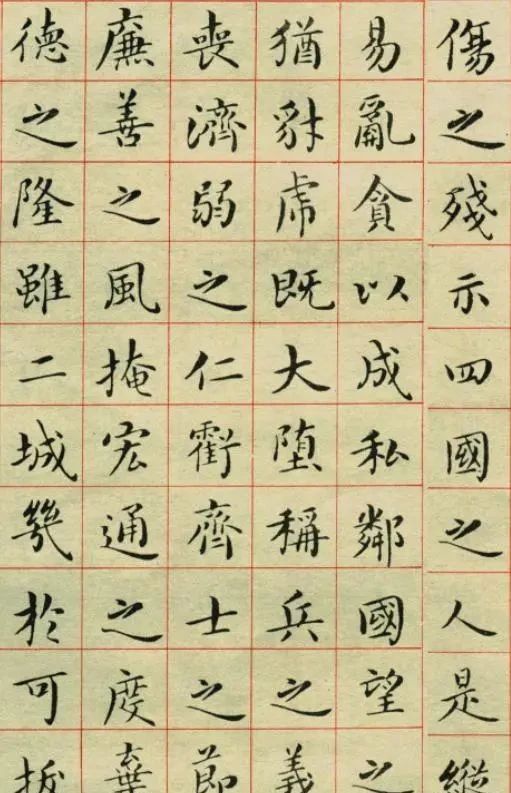 傷之殘示四國之人是縱
易亂貪以成私鄰國望之
猶豺虎既大墮稱兵之義
喪濟弱之仁虧齊士之節
廉善之風掩宏通之度棄
德之隆雖二城幾於可拔